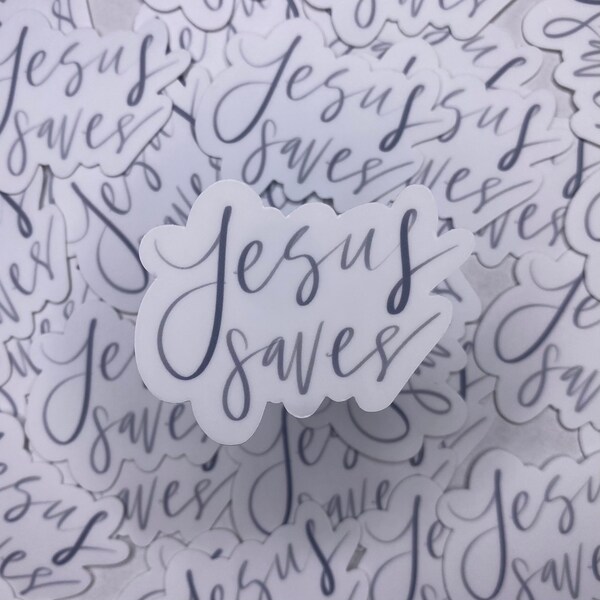 Jesus
saves